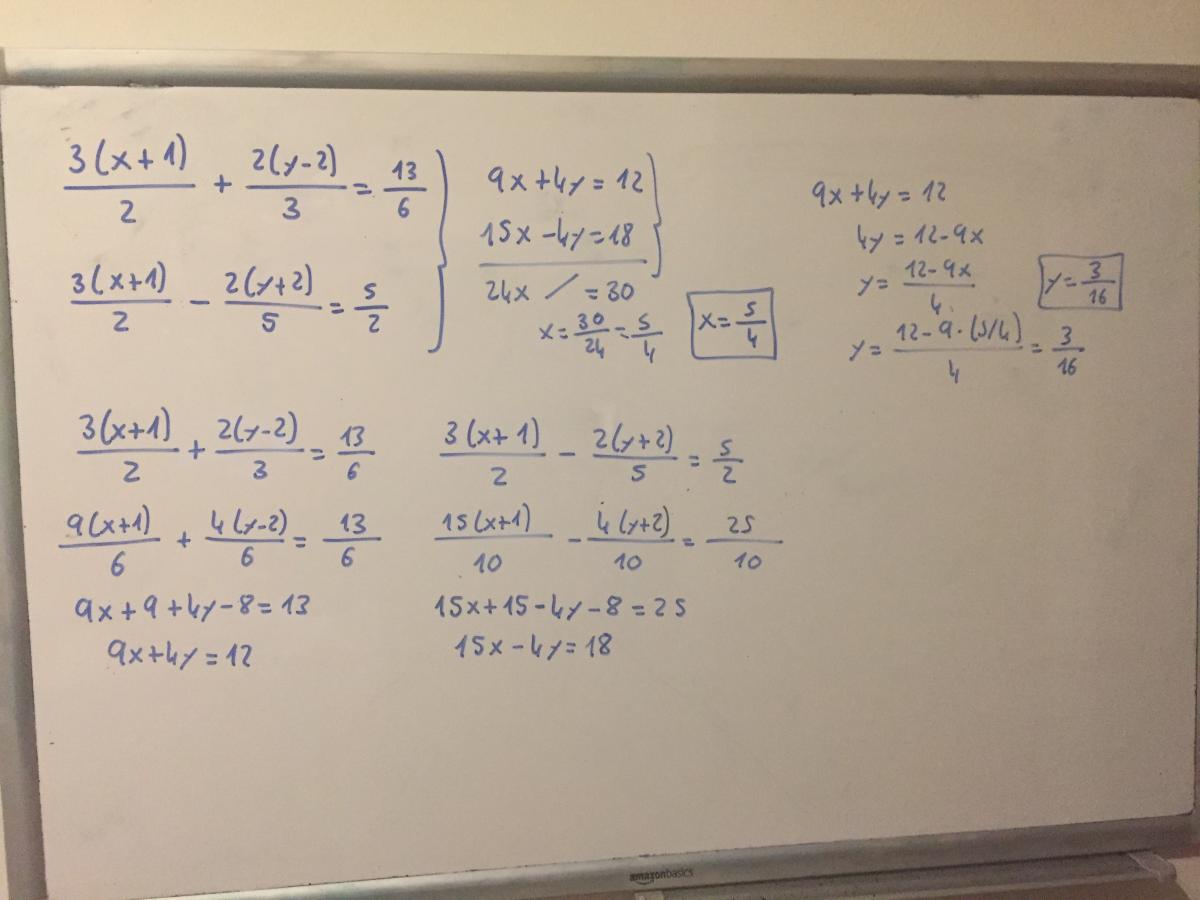 3(x+1)/2 + 2(y-2)/3 = 13/6
3(x+1)/2 - 2(y+2)/5 = 5/2
9x+4y=12
15x-4y=18
24x / =30
x=30/24=5/4
x=5/4
9x+4y=12
4y=12-9x
y=12-9x/4
y=12-9·(5/4)/4=3/16
y=3/16
3(x+1)/2 + 2(y-2)/3 = 13/6
9(x+1)/6 + 4(y-2)/6 = 13/6
9x+9+4y-8=13
9x+4y=12
3(x+1)/2 - 2(y+2)/5 = 5/2
15(x+1)/10 - 4(y+2)/10 = 25/10
15x+15-4y-8=25
15x-4y=18
amazonbasics